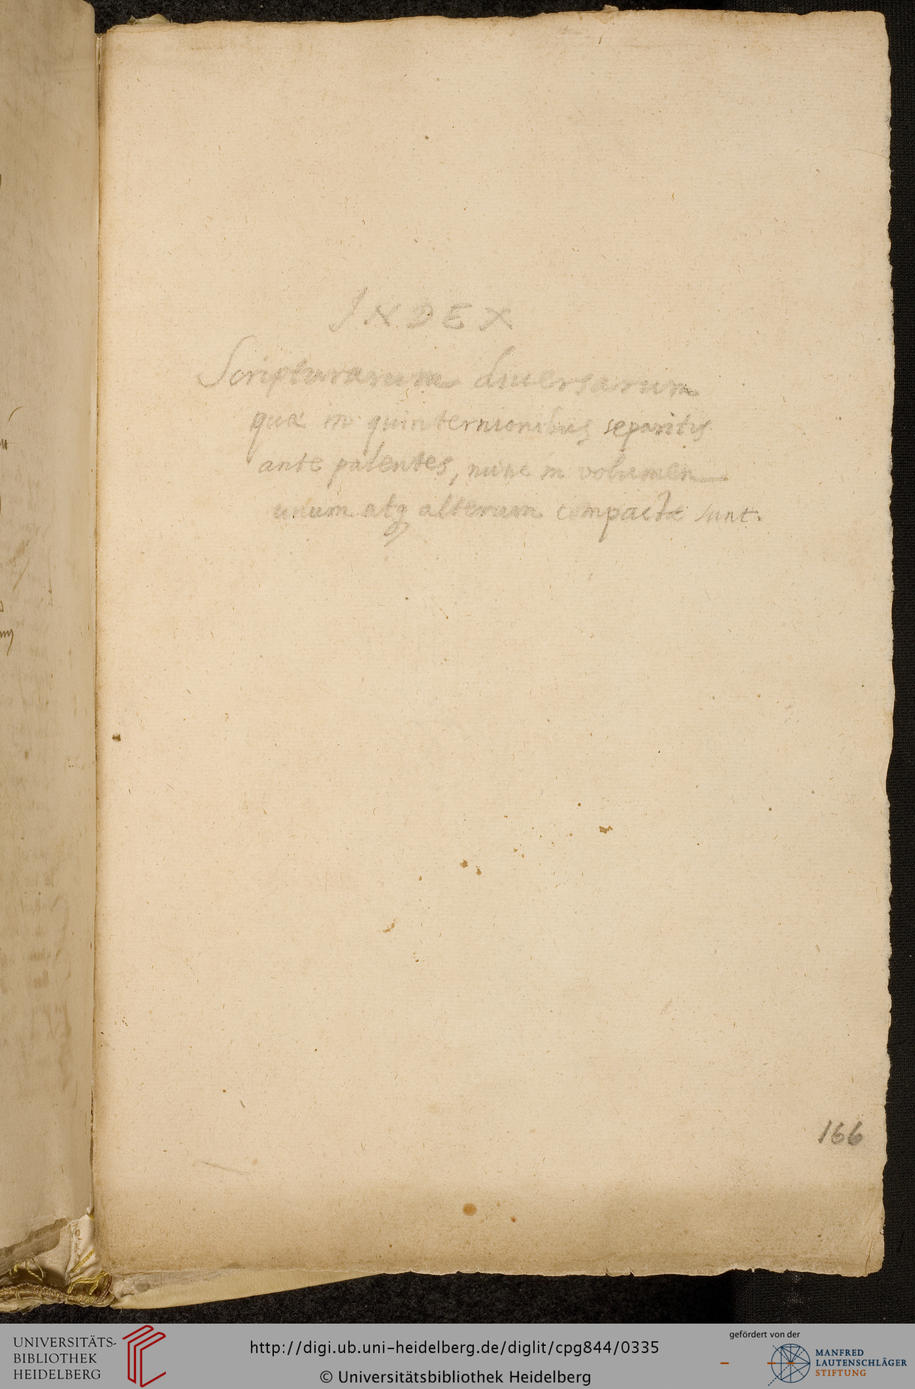 INDEX
Scripturarum diuersarum
quæ in quinternionibus separatis
ante patentes, nunc in volumen
unum atq alterum compactæ sunt.
166
UNIVERSITÄTS-
BIBLIOTHEK
HEIDELBERG
http://digi.ub.uni-heidelberg.de/diglit/cpg844/0335
© Universitätsbibliothek Heidelberg
gefördert von der
MANFRED
LAUTENSCHLÄGER
STIFTUNG